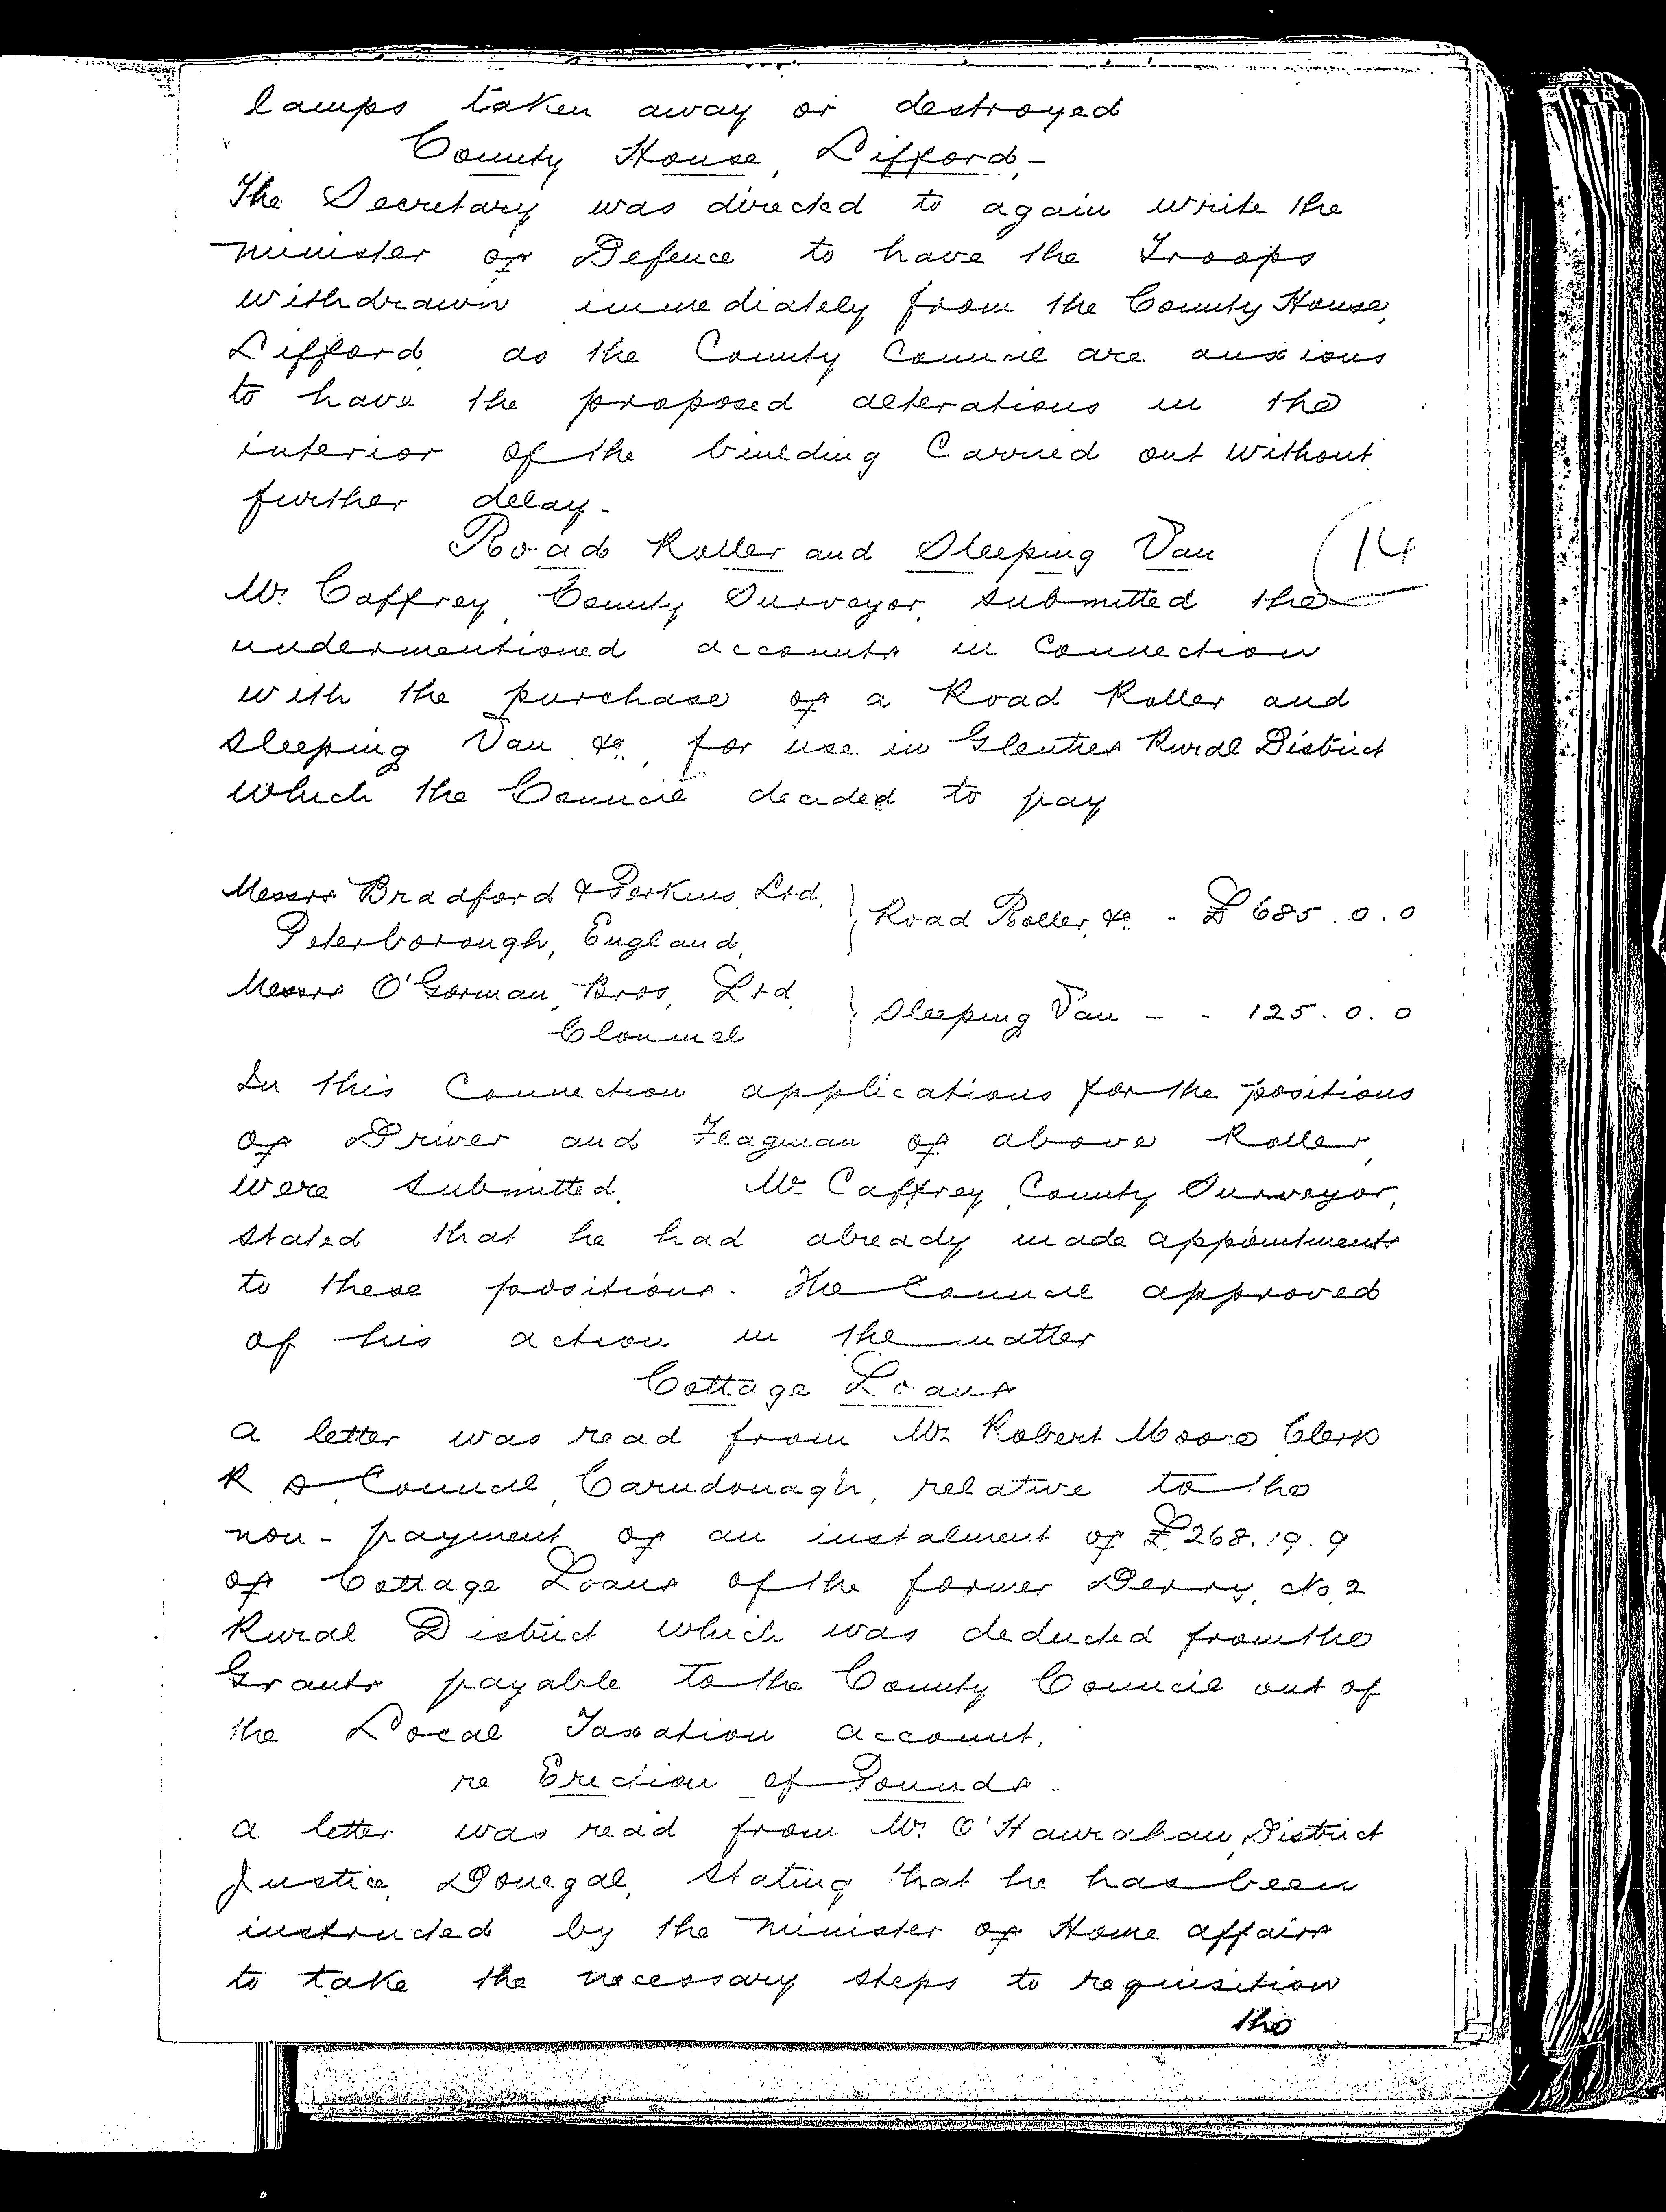 lamps taken away or destroyed
County House, Lifford,-
The Secretary was directed to again write the
Minister of Defence to have the Troops
withdrawn immediately from the County House,
Lifford, as the County Council are anxious
to have the proposed alterations in the
interior of the building Carried out without
further delay-
Road Roller and Sleeping Van (14
Mr. Caffrey, County Surveyor, submitted the
undermentioned accounts in Connection
with the purchase of a Road Roller and
Sleeping Van &c., for use in Glenties Rural District
which the Council decided to pay
Messrs Bradford & Perkins, Ltd, Peterborough, England, } Road Roller, &c. - £685.0.0
Messrs O'Gorman, Bros, Ltd, Clonmel } Sleeping Van - - 125.0.0
In this Connection applications for the positions
of Driver and Flagman of above Roller,
were submitted. Mr. Caffrey, County Surveyor,
stated that he had already made appointments
to these positions. The Council approved
of his action in the matter
Cottage Loans
A letter was read from Mr. Robert Moore Clerk
R D Council, Carndonagh, relative to the
non-payment of an instalment of £268.19.9
of Cottage Loans of the former Derry, No. 2
Rural District which was deducted from the
Grants payable to the County Council out of
the Local Taxation account.
re Erection of Pounds.
A letter was read from Mr. O'Hanrahan, District
Justice, Donegal, stating that he has been
instructed by the Minister of Home affairs
to take the necessary steps to requisition
the